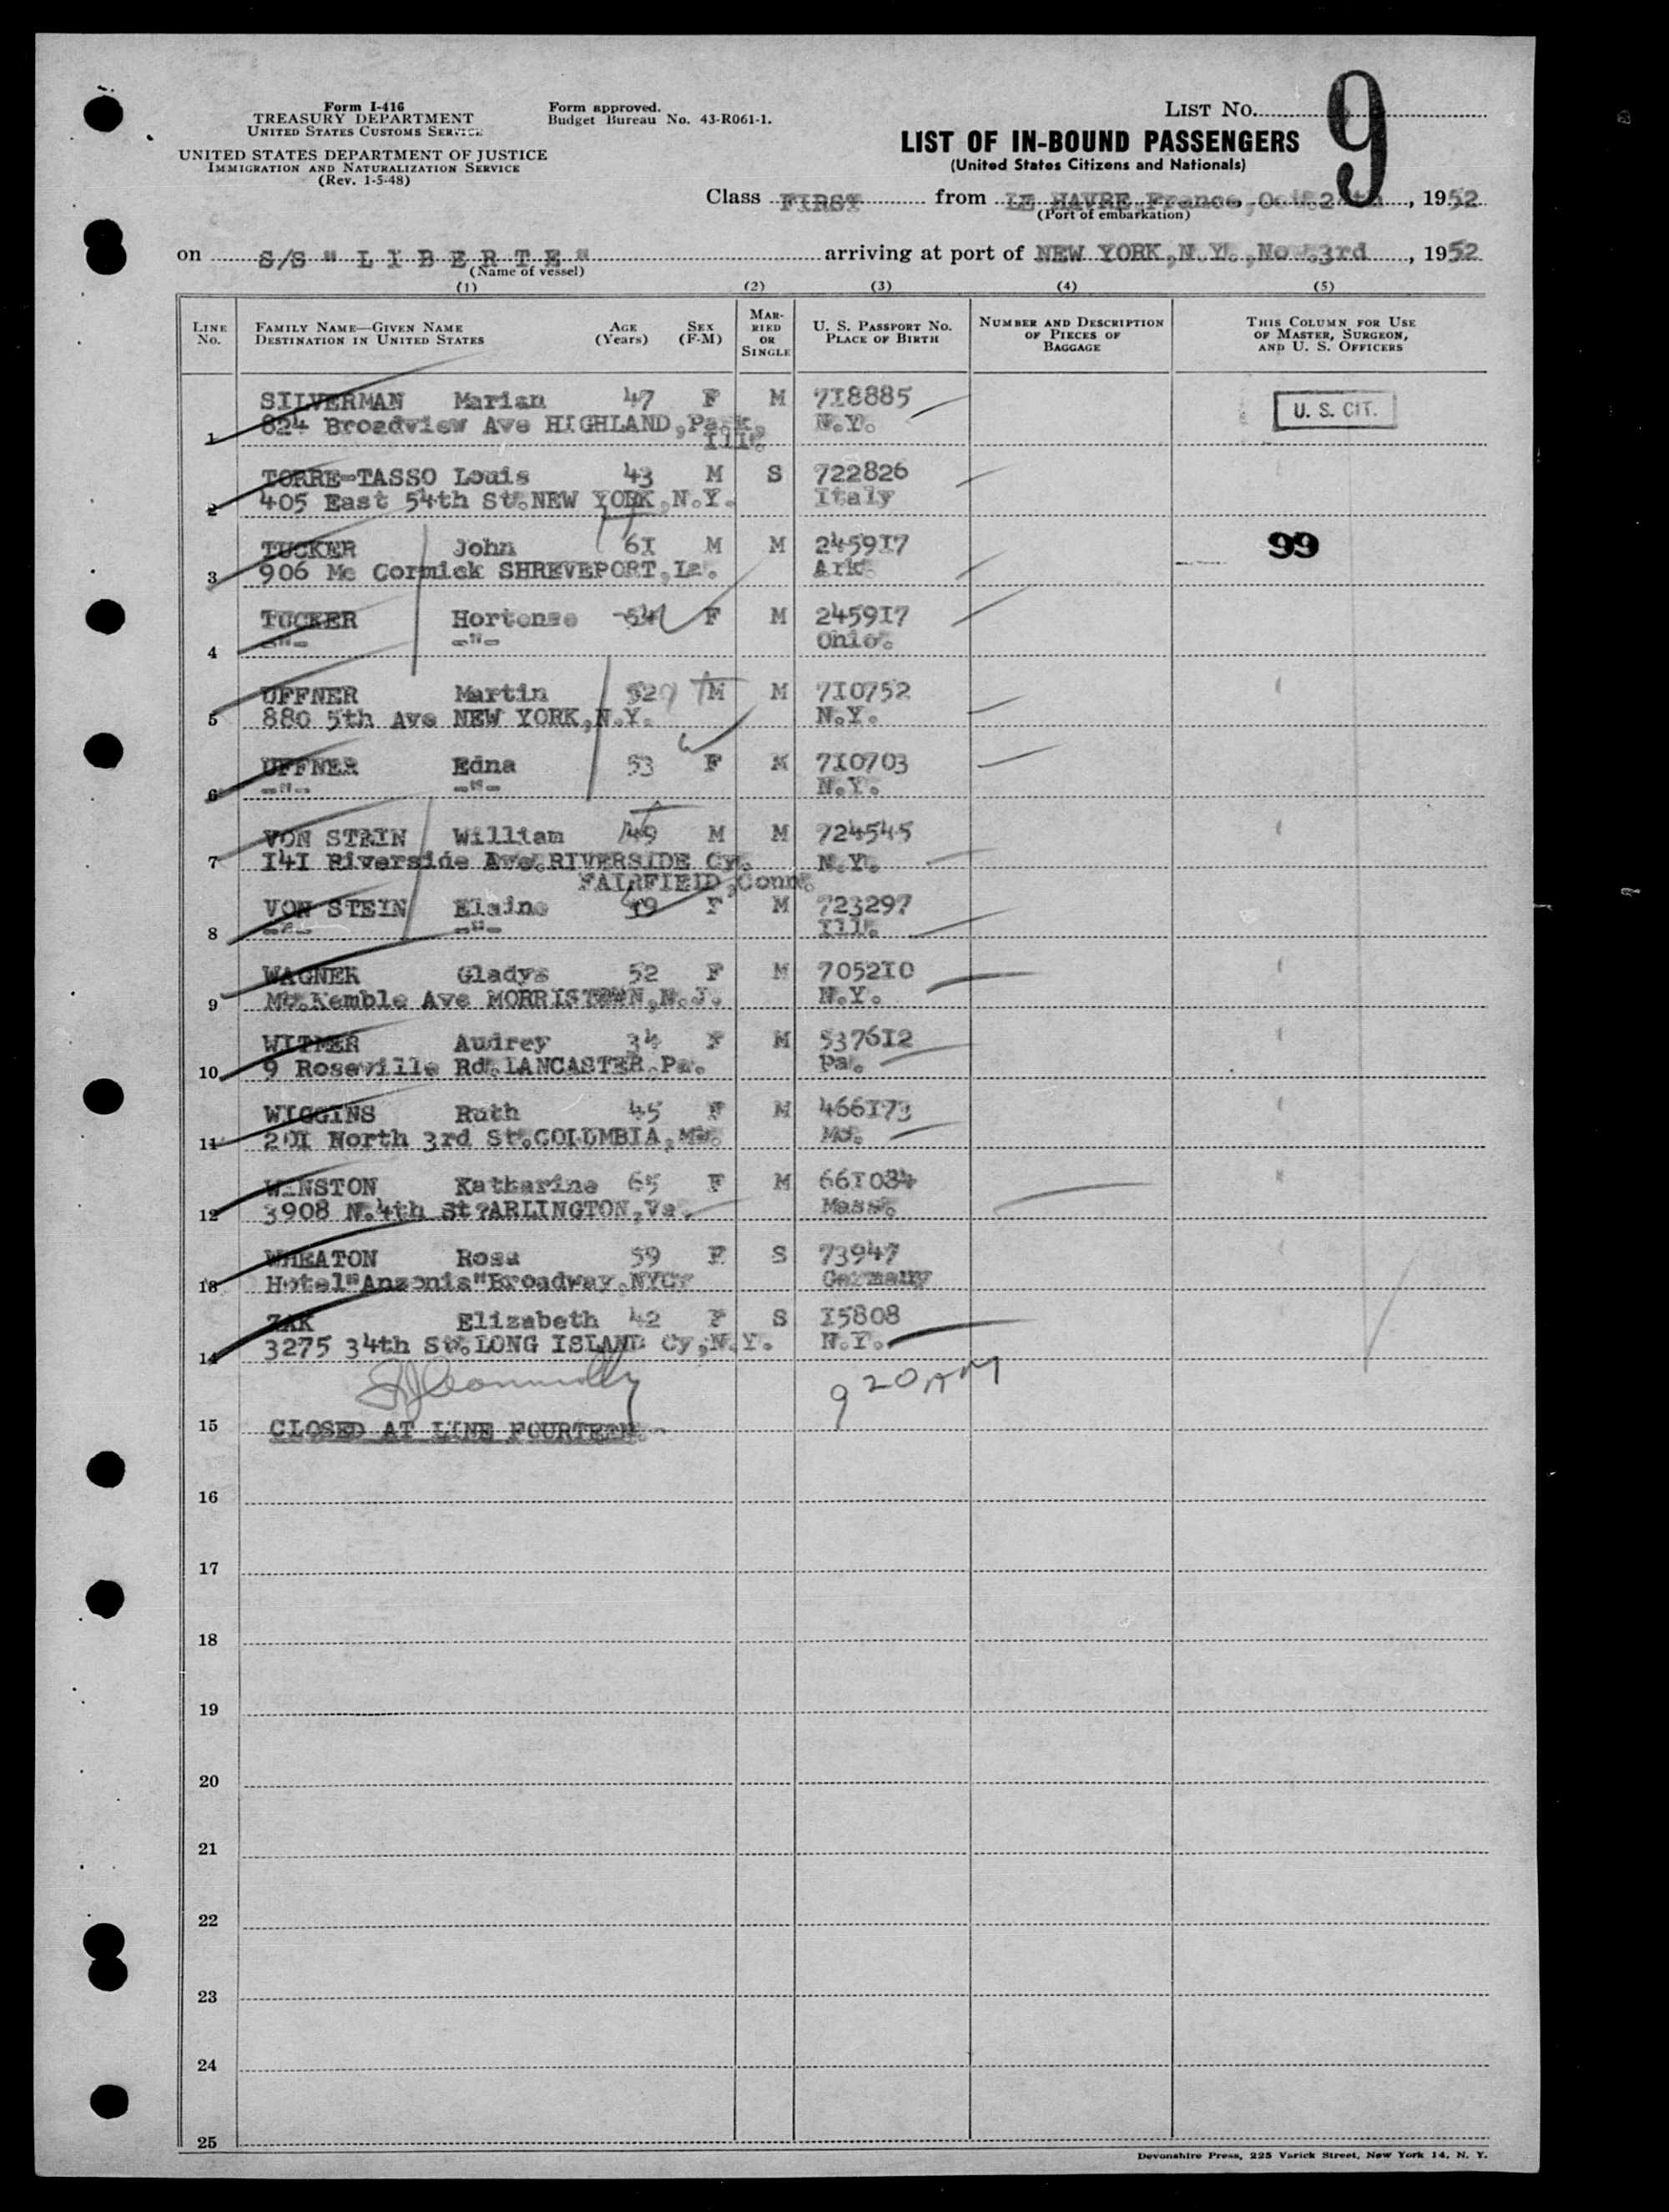 Form I-416
TREASURY DEPARTMENT
UNITED STATES CUSTOMS SERVICE
UNITED STATES DEPARTMENT OF JUSTICE
IMMIGRATION AND NATURALIZATION SERVICE
(Rev. 1-5-48)
Form approved.
Budget Bureau No. 43-R061-1.
LIST NO. 9
LIST OF IN-BOUND PASSENGERS
(United States Citizens and Nationals)
Class FIRST from LE HAVRE,France, , 1952
(Port of embarkation)
on S/S " L I B E R T E " arriving at port of NEW YORK,N.Y.,Nov.3rd , 1952
(Name of vessel)
(1) (2) (3) (4) (5)
LINE No. FAMILY NAME—GIVEN NAME DESTINATION IN UNITED STATES AGE (Years) SEX (F-M) MARRIED OR SINGLE U. S. PASSPORT NO. PLACE OF BIRTH NUMBER AND DESCRIPTION OF PIECES OF BAGGAGE THIS COLUMN FOR USE OF MASTER, SURGEON, AND U. S. OFFICERS
SILVERMAN Marian 47 F M 7I8885 U. S. CIT.
1 824 Broadview Ave HIGHLAND,Park, N.Y.
Ill.
TORRE-TASSO Louis 43 M S 722826
2 405 East 54th St.NEW YORK,N.Y. Italy
TUCKER John 6I M M 2459I7 99
3 906 Mc Cormick SHREVEPORT,La. Ark.
TUCKER Hortense 54 F M 2459I7
4 -"- -"- Ohio.
UFFNER Martin 52 M M 7I0752
5 880 5th Ave NEW YORK,N.Y. N.Y.
UFFNER Edna 53 F M 7I0703
6 -"- -"- N.Y.
VON STEIN William 49 M M 724545
7 I4I Riverside Ave.RIVERSIDE Cy. N.Y.
FAIRFIELD,Conn.
VON STEIN Elaine 49 F M 723297
8 -"- -"- Ill.
WAGNER Gladys 52 F M 7052I0
9 Mt.Kemble Ave MORRISTOWN,N.J. N.Y.
WITMER Audrey 34 F M 5376I2
10 9 Roseville Rd.LANCASTER,Pa. Pa.
WIGGINS Ruth 45 F M 466I73
11 20I North 3rd St.COLUMBIA, Mo.
WINSTON Katharine 65 F M 66I034
12 3908 N.4th St?ARLINGTON,Va. Mass.
WHEATON Rosa 59 F S 73947
13 Hotel"Ansonia"Broadway,NYCY Germany
ZAK Elizabeth 42 F S I5808
14 3275 34th St.LONG ISLAND Cy,N.Y. N.Y.
9 20 AM
15 CLOSED AT LINE FOURTEEN
16
17
18
19
20
21
22
23
24
25
Devonshire Press, 225 Varick Street, New York 14, N. Y.